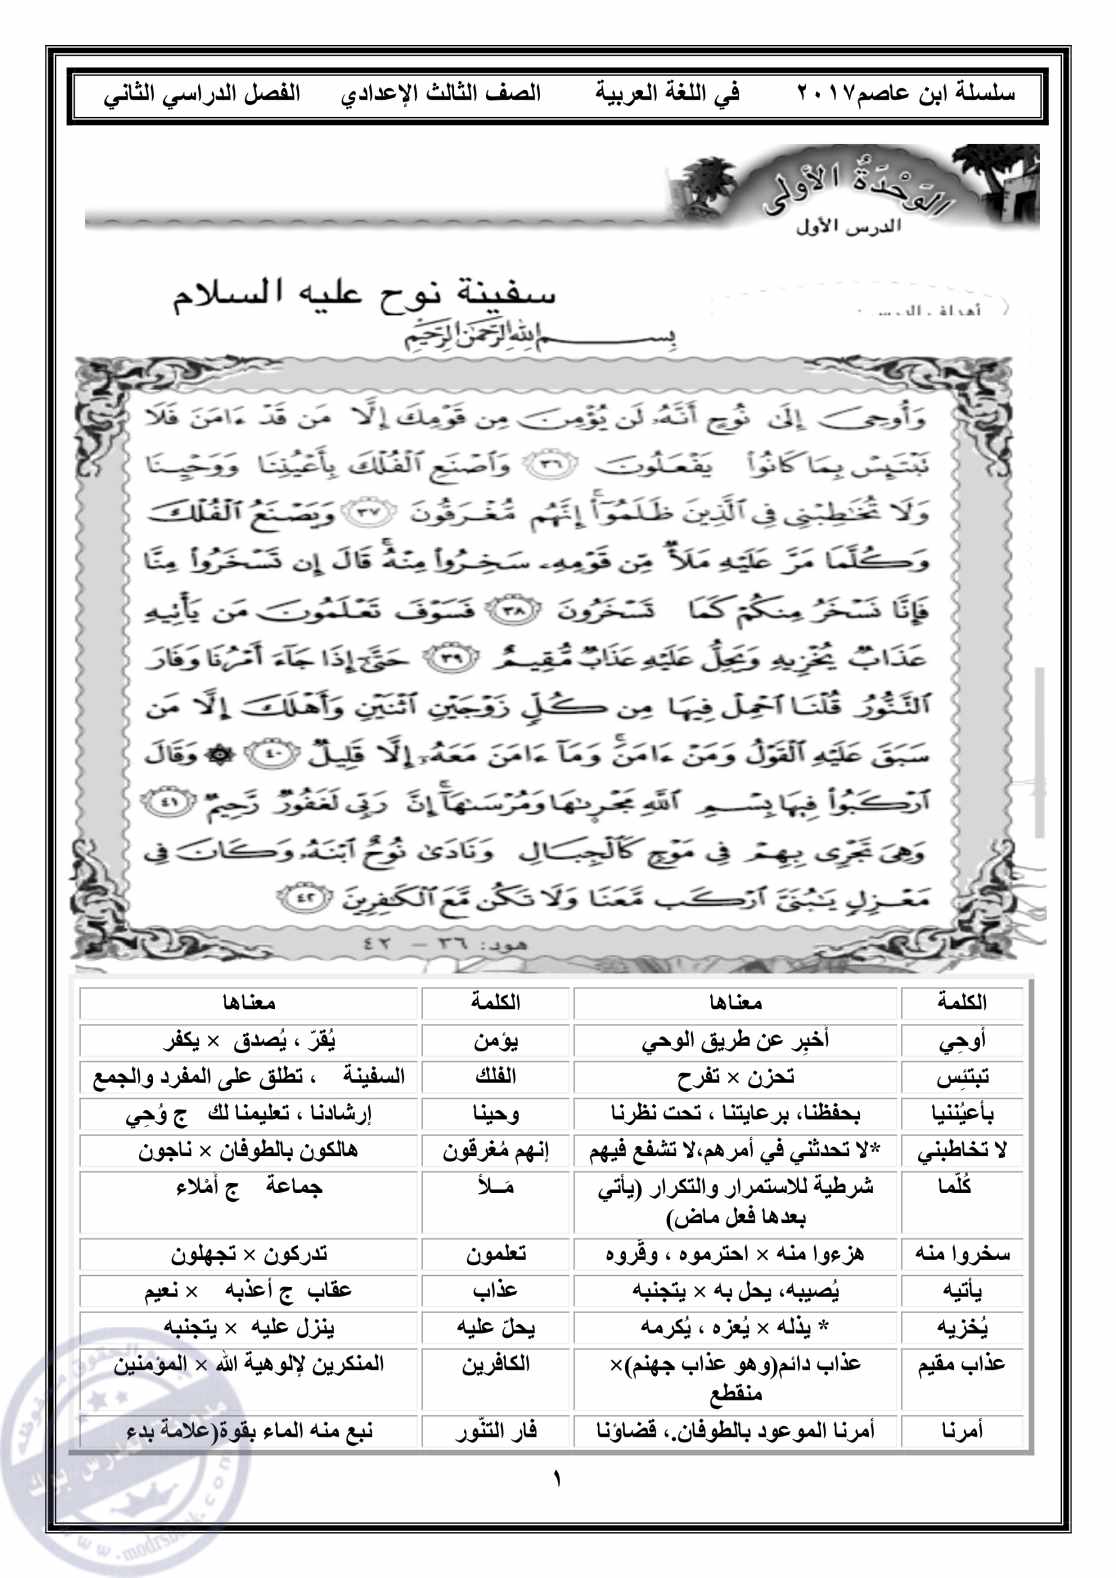 سلسلة ابن عاصم٢٠١٧ في اللغة العربية الصف الثالث الإعدادي الفصل الدراسي الثاني
الوَحْدَةُ الأولى
الدرس الأول
أهداف الدرس :
سفينة نوح عليه السلام
بِسْمِ اللهِ الرَّحْمَنِ الرَّحِيمِ
وَأُوحِيَ إِلَىٰ نُوحٍ أَنَّهُۥ لَن يُؤْمِنَ مِن قَوْمِكَ إِلَّا مَن قَدْ ءَامَنَ فَلَا
تَبْتَئِسْ بِمَا كَانُوا۟ يَفْعَلُونَ ٣٦ وَٱصْنَعِ ٱلْفُلْكَ بِأَعْيُنِنَا وَوَحْيِنَا
وَلَا تُخَٰطِبْنِى فِى ٱلَّذِينَ ظَلَمُوٓا۟ ۚ إِنَّهُم مُّغْرَقُونَ ٣٧ وَيَصْنَعُ ٱلْفُلْكَ
وَكُلَّمَا مَرَّ عَلَيْهِ مَلَأٌ مِّن قَوْمِهِۦ سَخِرُوا۟ مِنْهُ ۚ قَالَ إِن تَسْخَرُوا۟ مِنَّا
فَإِنَّا نَسْخَرُ مِنكُمْ كَمَا تَسْخَرُونَ ٣٨ فَسَوْفَ تَعْلَمُونَ مَن يَأْتِيهِ
عَذَابٌ يُخْزِيهِ وَيَحِلُّ عَلَيْهِ عَذَابٌ مُّقِيمٌ ٣٩ حَتَّىٰٓ إِذَا جَآءَ أَمْرُنَا وَفَارَ
ٱلتَّنُّورُ قُلْنَا ٱحْمِلْ فِيهَا مِن كُلٍّ زَوْجَيْنِ ٱثْنَيْنِ وَأَهْلَكَ إِلَّا مَن
سَبَقَ عَلَيْهِ ٱلْقَوْلُ وَمَنْ ءَامَنَ ۚ وَمَآ ءَامَنَ مَعَهُۥٓ إِلَّا قَلِيلٌ ٤٠ ۞ وَقَالَ
ٱرْكَبُوا۟ فِيهَا بِسْمِ ٱللَّهِ مَجْر۪ىٰهَا وَمُرْسَىٰهَآ ۚ إِنَّ رَبِّى لَغَفُورٌ رَّحِيمٌ ٤١
وَهِىَ تَجْرِى بِهِمْ فِى مَوْجٍ كَٱلْجِبَالِ وَنَادَىٰ نُوحٌ ٱبْنَهُۥ وَكَانَ فِى
مَعْزِلٍ يَٰبُنَىَّ ٱرْكَب مَّعَنَا وَلَا تَكُن مَّعَ ٱلْكَٰفِرِينَ ٤٢
هود: ٣٦ - ٤٢
الكلمة معناها الكلمة معناها
أوحِي أخبِر عن طريق الوحي يؤمن يُقرّ ، يُصدق × يكفر
تبتئِس تحزن × تفرح الفلك السفينة ، تطلق على المفرد والجمع
بأعيُننيا بحفظنا، برعايتنا ، تحت نظرنا وحينا إرشادنا ، تعليمنا لك ج وُحِي
لا تخاطبني *لا تحدثني في أمرهم،لا تشفع فيهم إنهم مُغرقون هالكون بالطوفان × ناجون
كُلّما شرطية للاستمرار والتكرار (يأتي مَــلأ جماعة ج أمْلاء
بعدها فعل ماض)
سخروا منه هزءوا منه × احترموه ، وقّروه تعلمون تدركون × تجهلون
يأتيه يُصيبه، يحل به × يتجنبه عذاب عقاب ج أعذبه × نعيم
يُخزيه * يذله × يُعزه ، يُكرمه يحلّ عليه ينزل عليه × يتجنبه
عذاب مقيم عذاب دائم(وهو عذاب جهنم)× الكافرين المنكرين لإلوهية الله × المؤمنين
منقطع
أمرنا أمرنا الموعود بالطوفان.، قضاؤنا فار التنّور نبع منه الماء بقوة(علامة بدء
١
www.modrsbook.com